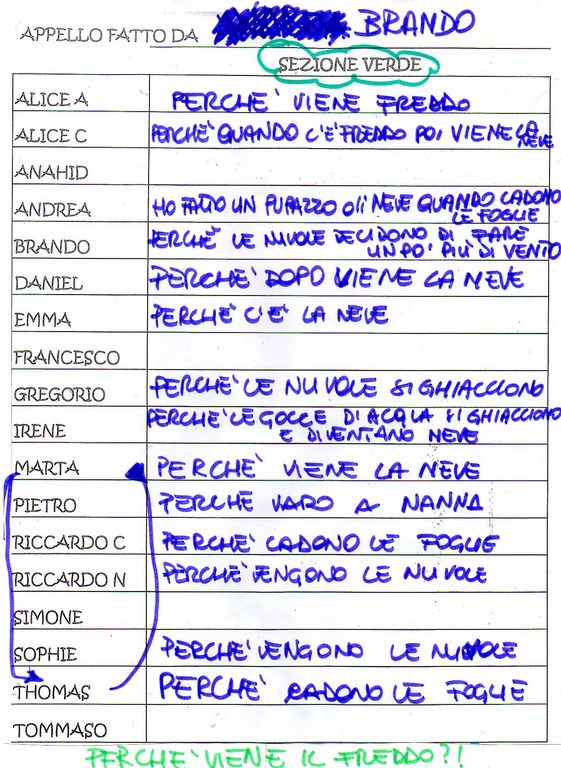 APPELLO FATTO DA BRANDO
SEZIONE VERDE
ALICE A PERCHE' VIENE FREDDO
ALICE C PERCHE' QUANDO C'E' FREDDO POI VIENE LA
NEVE
ANAHID
ANDREA HO FATTO UN PUPAZZO DI NEVE QUANDO CADONO
LE FOGLIE
BRANDO PERCHE' LE NUVOLE DECIDONO DI FARE
UN PO' PIÙ DI VENTO
DANIEL PERCHE' DOPO VIENE LA NEVE
EMMA PERCHE' C'E' LA NEVE
FRANCESCO
GREGORIO PERCHE' LE NUVOLE SI GHIACCIONO
IRENE PERCHE' LE GOCCE DI ACQUA SI GHIACCIONO
E DIVENTANO NEVE
MARTA PERCHE' VIENE LA NEVE
PIETRO PERCHE VADO A NANNA
RICCARDO C PERCHE' CADONO LE FOGLIE
RICCARDO N PERCHE' VENGONO LE NUVOLE
SIMONE
SOPHIE PERCHE' VENGONO LE NUVOLE
THOMAS PERCHE' CADONO LE FOGLIE
TOMMASO
PERCHE' VIENE IL FREDDO?!